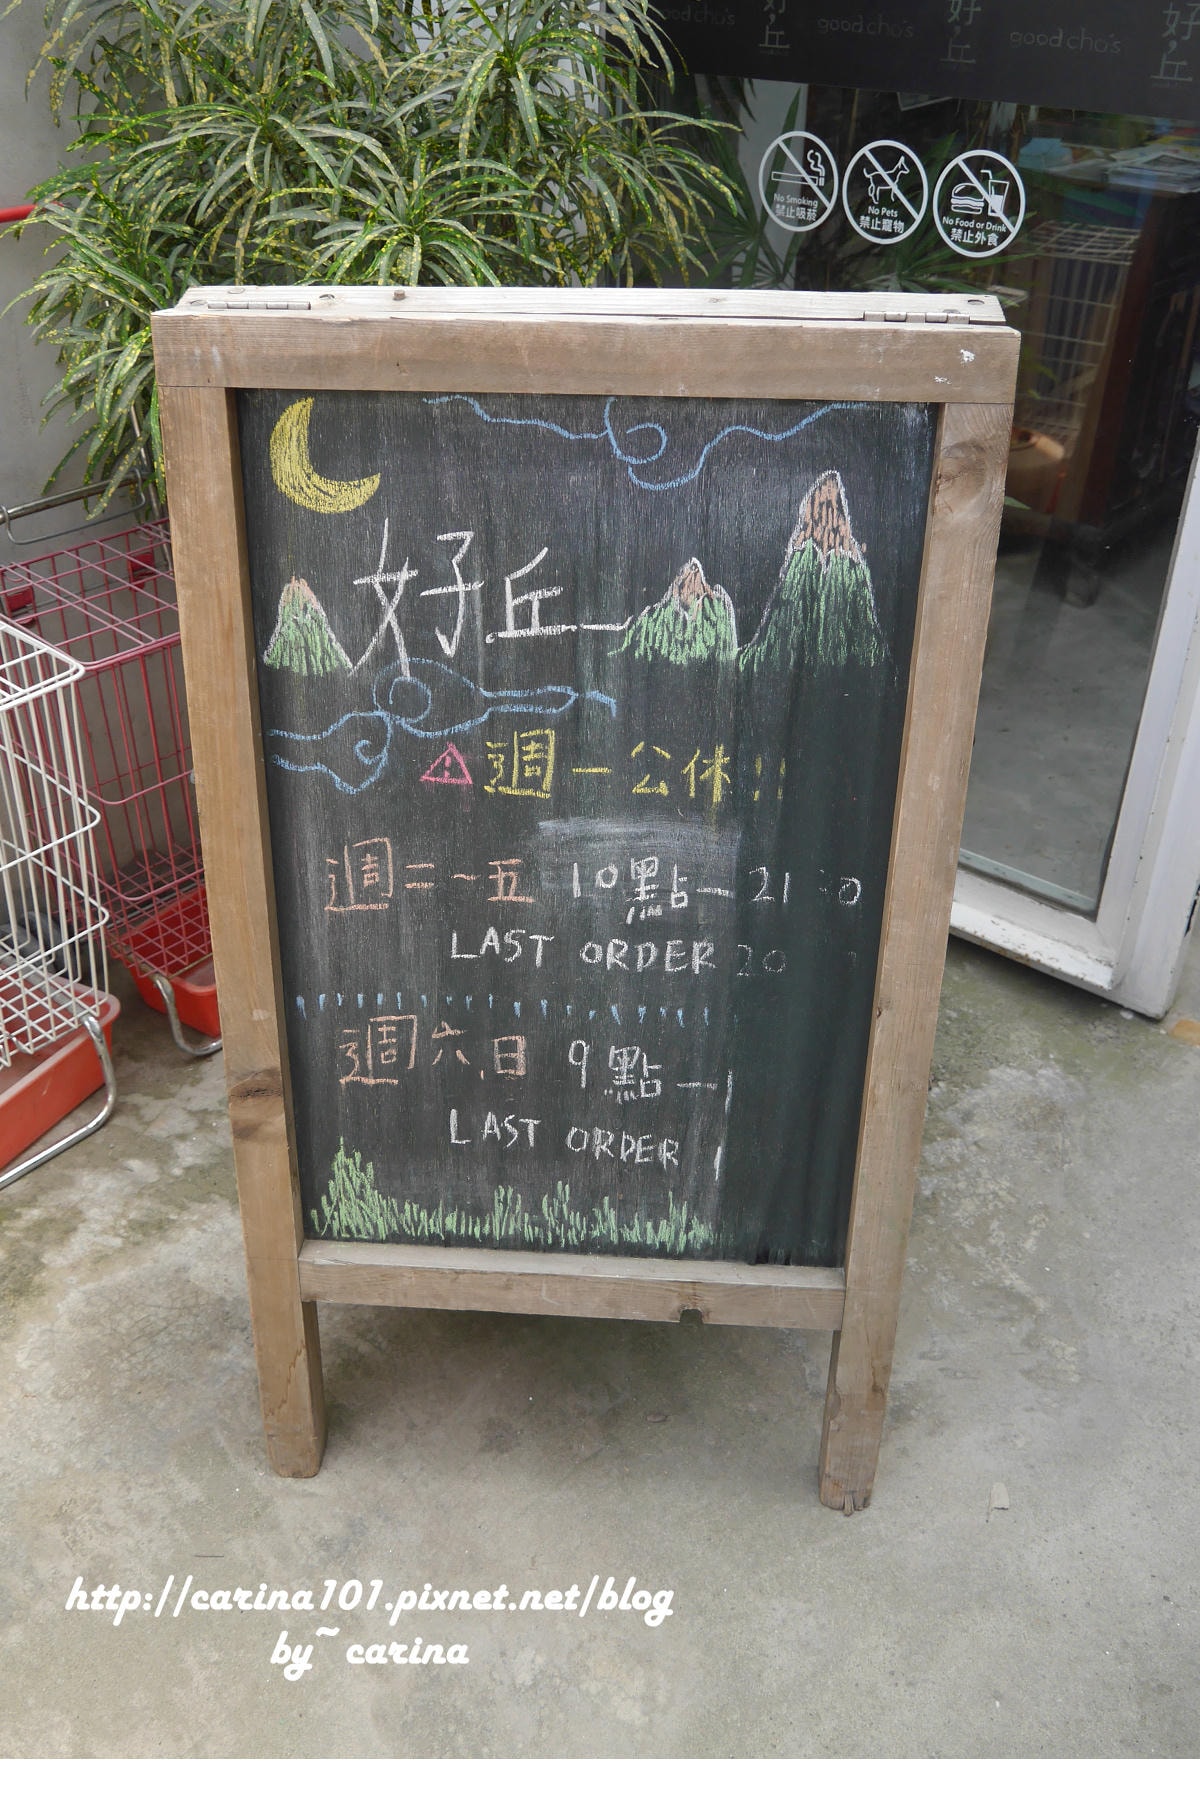 好丘 good cho's 好丘 good cho's 好丘
No Smoking
禁止吸菸
No Pets
禁止寵物
No Food or Drink
禁止外食
好丘
週一公休!!
週二~五 10點—21
LAST ORDER 20
週六.日 9點—
LAST ORDER
http://carina101.pixnet.net/blog
by~carina